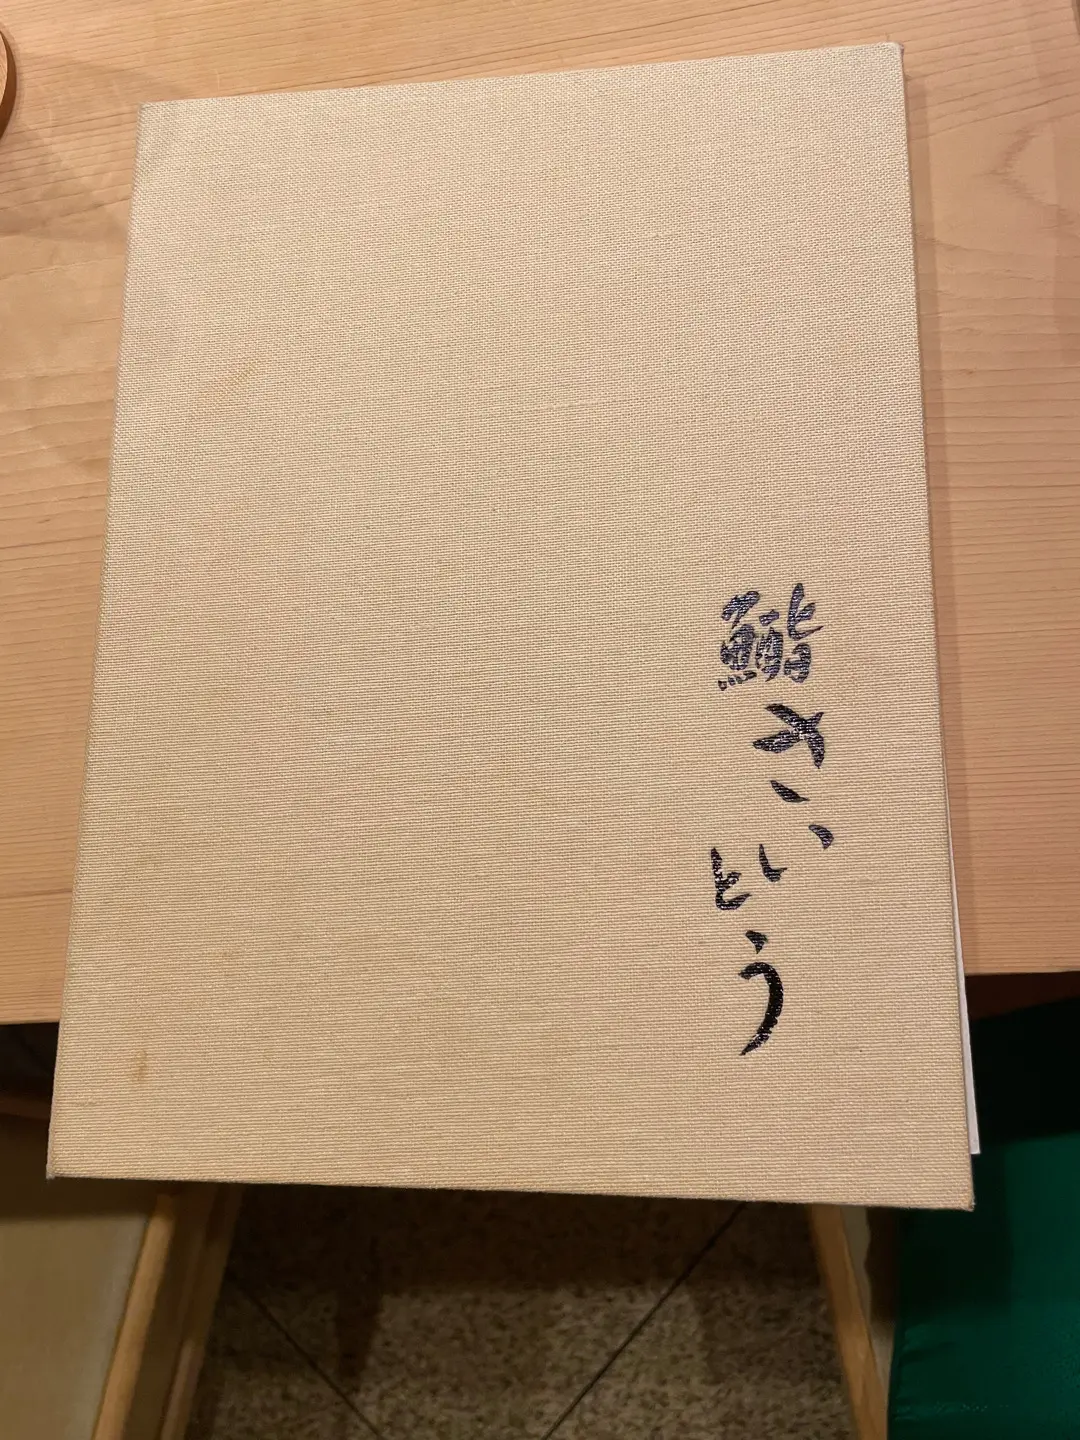 鮨さいとう